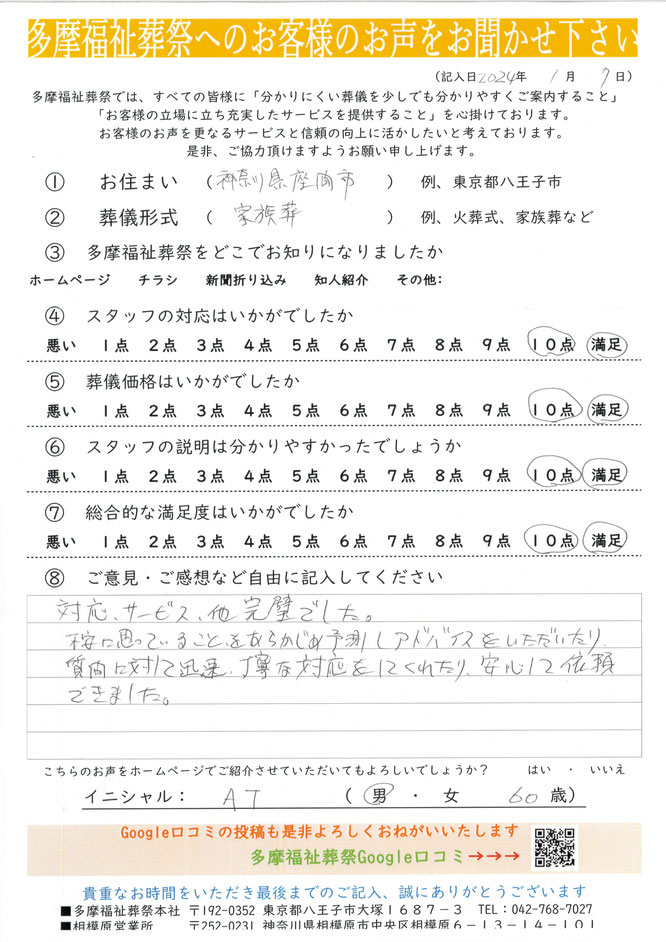 多摩福祉葬祭へのお客様のお声をお聞かせ下さい
（記入日2024年 1月 7日）
多摩福祉葬祭では、すべての皆様に「分かりにくい葬儀を少しでも分かりやすくご案内すること」
「お客様の立場に立ち充実したサービスを提供すること」を心掛けております。
お客様のお声を更なるサービスと信頼の向上に活かしたいと考えております。
是非、ご協力頂けますようお願い申し上げます。
① お住まい （神奈川県座間市） 例、東京都八王子市
② 葬儀形式 （ 家族葬 ） 例、火葬式、家族葬など
③ 多摩福祉葬祭をどこでお知りになりましたか
ホームページ チラシ 新聞折り込み 知人紹介 その他：
④ スタッフの対応はいかがでしたか
悪い 1点 2点 3点 4点 5点 6点 7点 8点 9点 10点 満足
⑤ 葬儀価格はいかがでしたか
悪い 1点 2点 3点 4点 5点 6点 7点 8点 9点 10点 満足
⑥ スタッフの説明は分かりやすかったでしょうか
悪い 1点 2点 3点 4点 5点 6点 7点 8点 9点 10点 満足
⑦ 総合的な満足度はいかがでしたか
悪い 1点 2点 3点 4点 5点 6点 7点 8点 9点 10点 満足
⑧ ご意見・ご感想など自由に記入してください
対応、サービス、他完璧でした。
不安に思っていることをあらかじめ予測しアドバイスをいただいたり、
質問に対して迅速、丁寧な対応をしてくれたり、安心して依頼
できました。
こちらのお声をホームページでご紹介させていただいてもよろしいでしょうか？ はい ・ いいえ
イニシャル： AT （ 男 ・ 女 60歳）
Google口コミの投稿も是非よろしくおねがいいたします
多摩福祉葬祭Google口コミ→→→
貴重なお時間をいただき最後までのご記入、誠にありがとうございます
■多摩福祉葬祭本社 〒192-0352 東京都八王子市大塚１６８７－３ TEL：042-768-7027
■相模原営業所 〒252-0231 神奈川県相模原市中央区相模原６－１３－１４－１０１